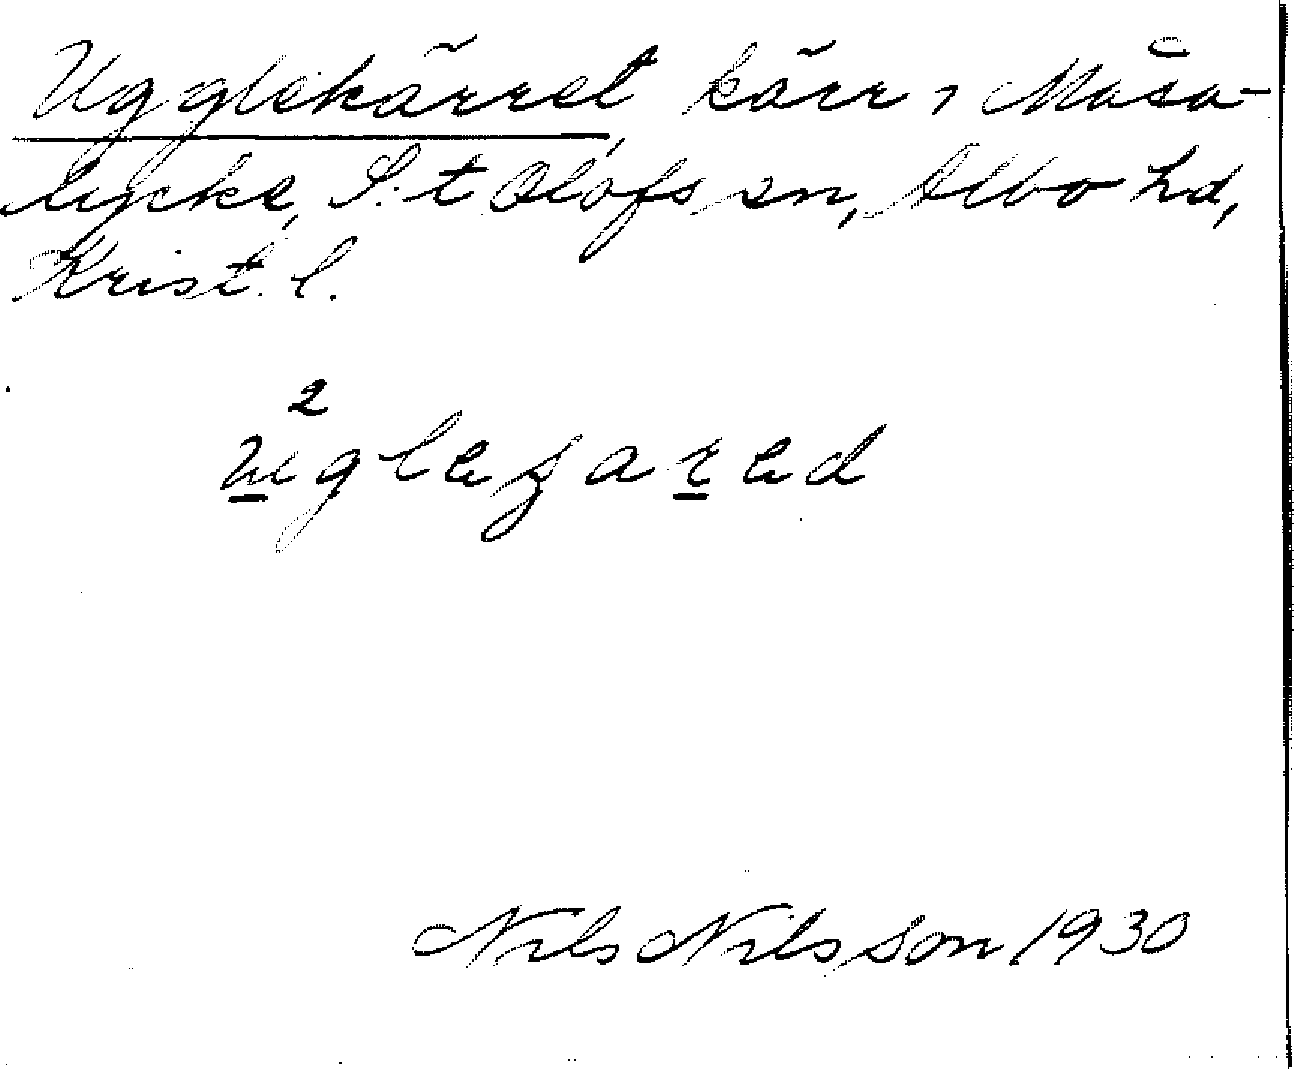 Ugglekärret, kärr i Måsa-
lycke, S:t Olofs sn, Albo hd,
Krist. l.
2
Nils Nilsson 1930